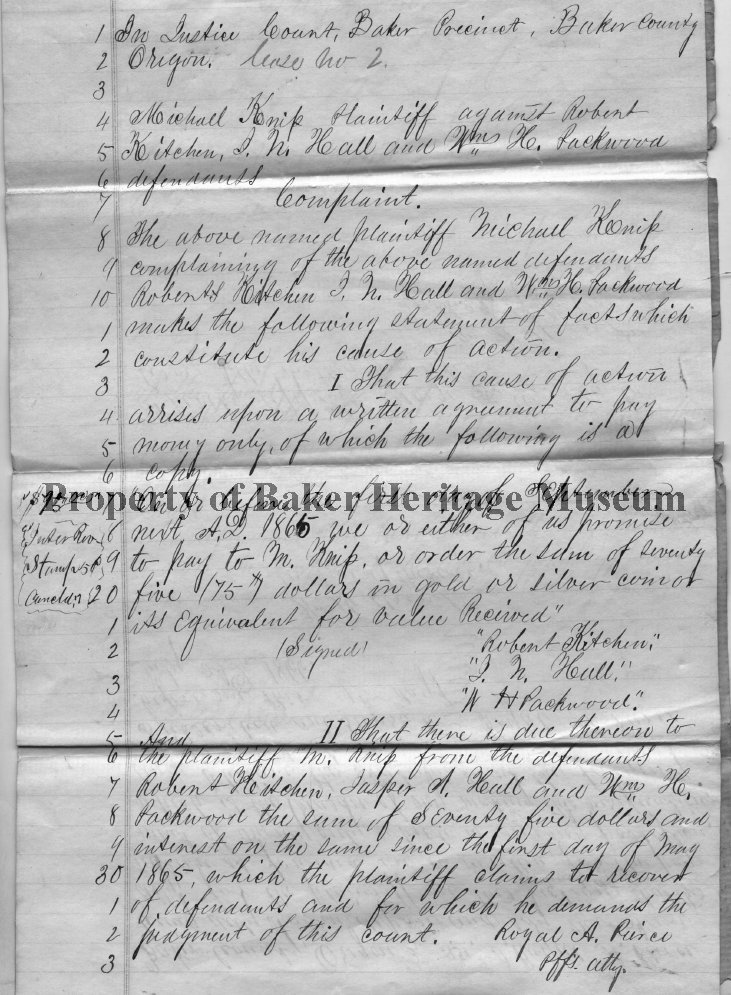 1 In Justice Court, Baker Precinct, Baker County
2 Oregon. Case No 2.
3
4 Michall Knip Plaintiff against Robert
5 Kitchen, J. N. Hall and Wm H. Packwood
6 defendants
7 Complaint.
8 The above named plaintiff Michall Knip
9 complaining of the above named defendants
10 Roberts Kitchen J. N. Hall and Wm H. Packwood
1 makes the following statement of facts which
2 constitute his cause of action.
3 I That this cause of action
4 arrises upon a written agreement to pay
5 money only, of which the following is a
6 copy.
Property of Baker Heritage Museum
"On or before the first day of September
6 next, A.D. 1865 we or either of us promise
Inter Rev
9 to pay to M. Knip, or order the sum of seventy
Stamp
20 five (75") dollars in gold or silver coin or
Cancld,
1 its equivalent for value Received"
2 (Signed) "Robert Kitchen".
3 "J. N. Hall."
4 "W H Packwood."
5 And II That there is due thereon to
6 the plaintiff M. Knip from the defendants
7 Robert Kitchen, Jasper N. Hall and Wm H.
8 Packwood the sum of Seventy five dollars and
9 interest on the same since the first day of May
30 1865, which the plaintiff claims to recover
1 of defendants and for which he demands the
2 judgment of this court. Royal A. Pierce
3 Pffs. atty.